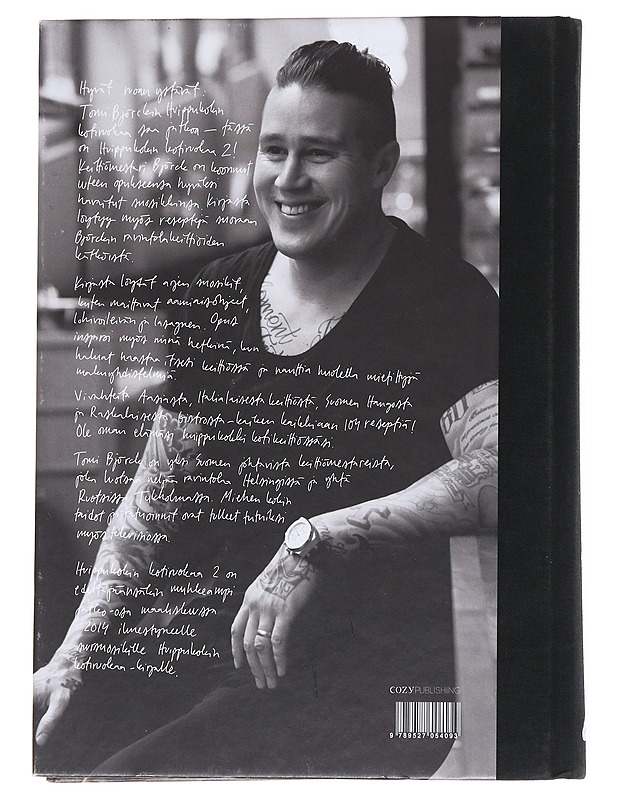 Hyvät ruoan ystävät:
Tomi Björckin Huippukokin
kotiruokaa saa jatkoa – tässä
on Huippukokin kotiruokaa 2!
Keittiömestari Björck on koonnut
uuteen opukseensa hyväksi
havaitut suosikkinsa. Kirjasta
löytyy myös reseptejä suoraan
Björckin ravintolakeittiöiden
kätköistä.
Kirjasta löydät arjen suosikit,
kuten maittavat aamiaisohjeet,
lohivoileivän ja lasagnen. Opus
inspiroi myös niinä hetkinä, kun
haluat haastaa itsesi keittiössä ja nauttia huolella mietittyjä
makuyhdistelmiä.
Vivahteita Aasiasta, Italialaisesta keittiöstä, Suomen Hangosta
ja Ranskalaisesta bistrosta – kaiken kaikkiaan 104 reseptiä!
Ole oman elämäsi huippukokki kotikeittiössäsi.
Tomi Björck on yksi Suomen johtavista keittiömestareista,
joka luotsaa neljää ravintolaa Helsingissä ja yhtä
Ruotsissa Tukholmassa. Miehen kokin
taidot ja tatuoinnit ovat tulleet tutuiksi
myös televisiossa.
Huippukokin kotiruokaa 2 on
edeltäjäänsäkin muhkeampi
jatko-osa maaliskuussa
2014 ilmestyneelle
suursuosikille Huippukokin
kotiruokaa -kirjalle.
COZYPUBLISHING
9 789527 054093